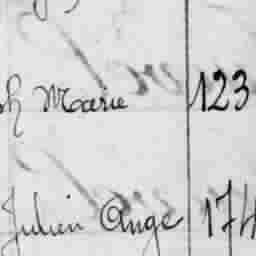 h Marie 123
Julien Ange 174